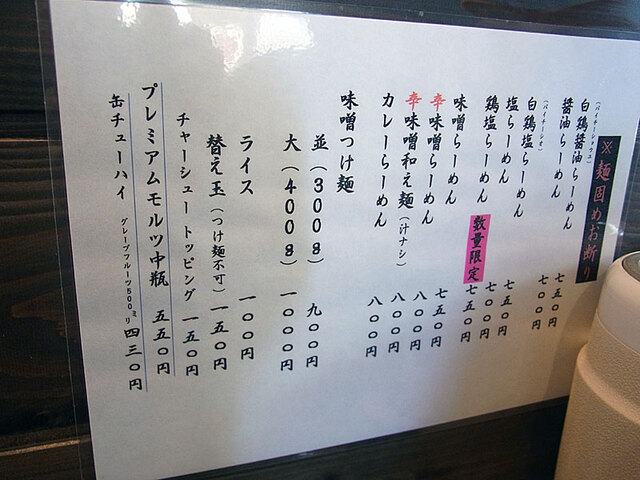 ※麺固めお断り
(パイチーショウユ)
白鶏醤油らーめん 七五〇円
醤油らーめん 七〇〇円
(パイチーシオ)
白鶏塩らーめん 七五〇円
塩らーめん 七〇〇円
鶏塩らーめん 数量限定 七五〇円
味噌らーめん 七五〇円
辛味噌らーめん 八〇〇円
辛味噌和え麺(汁ナシ) 八〇〇円
カレーらーめん 八〇〇円
味噌つけ麺
並(300g) 九〇〇円
大(400g) 一〇〇〇円
ライス 一〇〇円
替え玉(つけ麺不可) 一五〇円
チャーシュートッピング 一五〇円
プレミアムモルツ中瓶 五五〇円
缶チューハイ グレープフルーツ500ミリ 四三〇円